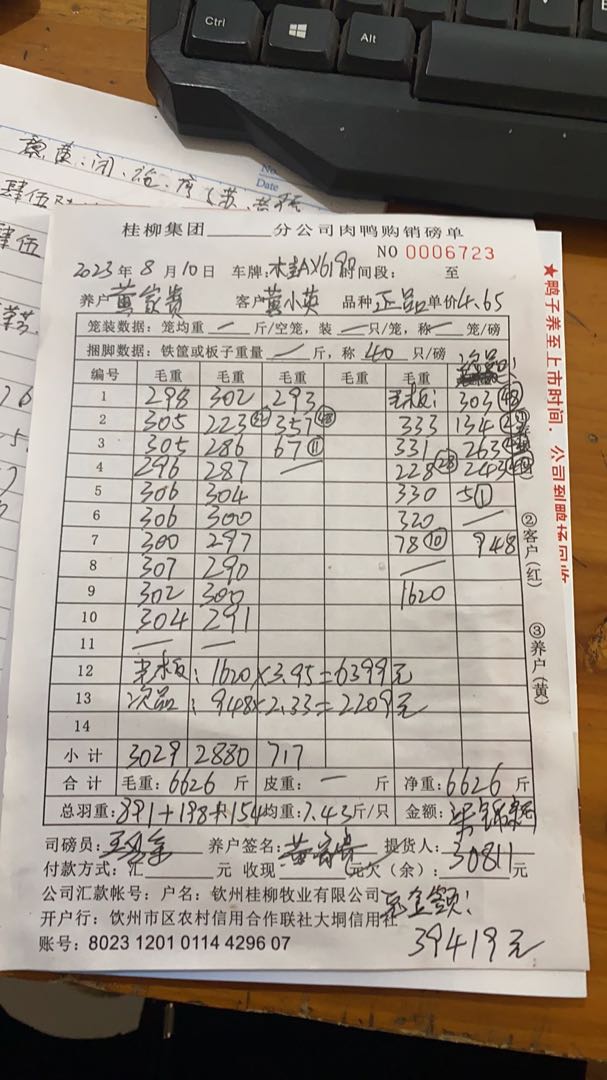 Ctrl
Alt
No.
Date
肆伍
桂柳集团______分公司肉鸭购销磅单
NO 0006723
2023年8月10日 车牌: 时间段: 至
养户 客户黄小英 品种正品 单价4.65
笼装数据:笼均重 一 斤/空笼,装 一 只/笼,称 一 笼/磅
捆脚数据:铁筐或板子重量 一 斤,称 40 只/磅 次品
编号 毛重 毛重 毛重 毛重 毛重 毛重
1 298 302 293 303 48
2 305 223 357 48 333 134
3 305 286 67 11 331 263
4 296 287 一 228 28 243
5 306 304 330 5 1
6 306 300 320 一
7 300 297 78 10 948
8 307 290 一
9 302 300 1620
10 304 291
11 一 一
12 老水板:1620×3.95=6399元
13 次品:948×2.33=2209元
14
小计 3029 2880 717
合计 毛重:6626 斤 皮重: 一 斤 净重:6626 斤
总羽重:891+198+154 均重:7.43斤/只 金额:
司磅员: 养户签名: 提货人:
付款方式:汇______元 收现______元欠(余):30811元
公司汇款帐号:户名:钦州桂柳牧业有限公司
总金额:
开户行:钦州市区农村信用合作联社大垌信用社
39419元
账号:8023 1201 0114 4296 07
②客户(红)
③养户(黄)
★鸭子养至上市时间,公司到鸭场回收